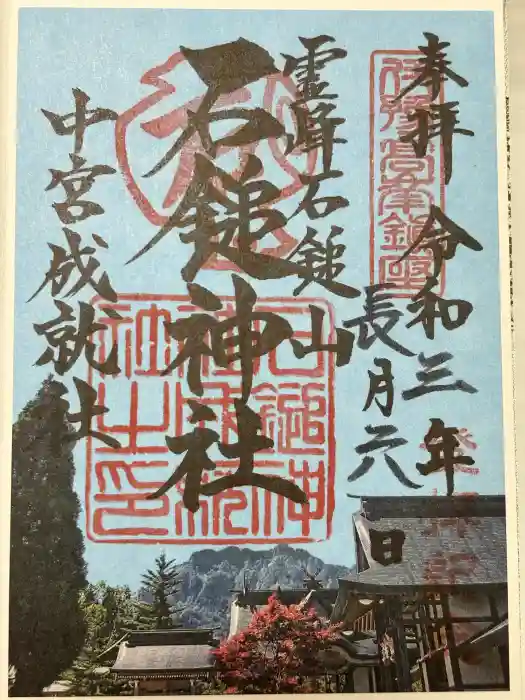 奉拝 令和三年
長月六日
霊峰石鎚山
石鎚神社
中宮成就社
石鎚神
社成就
社之印